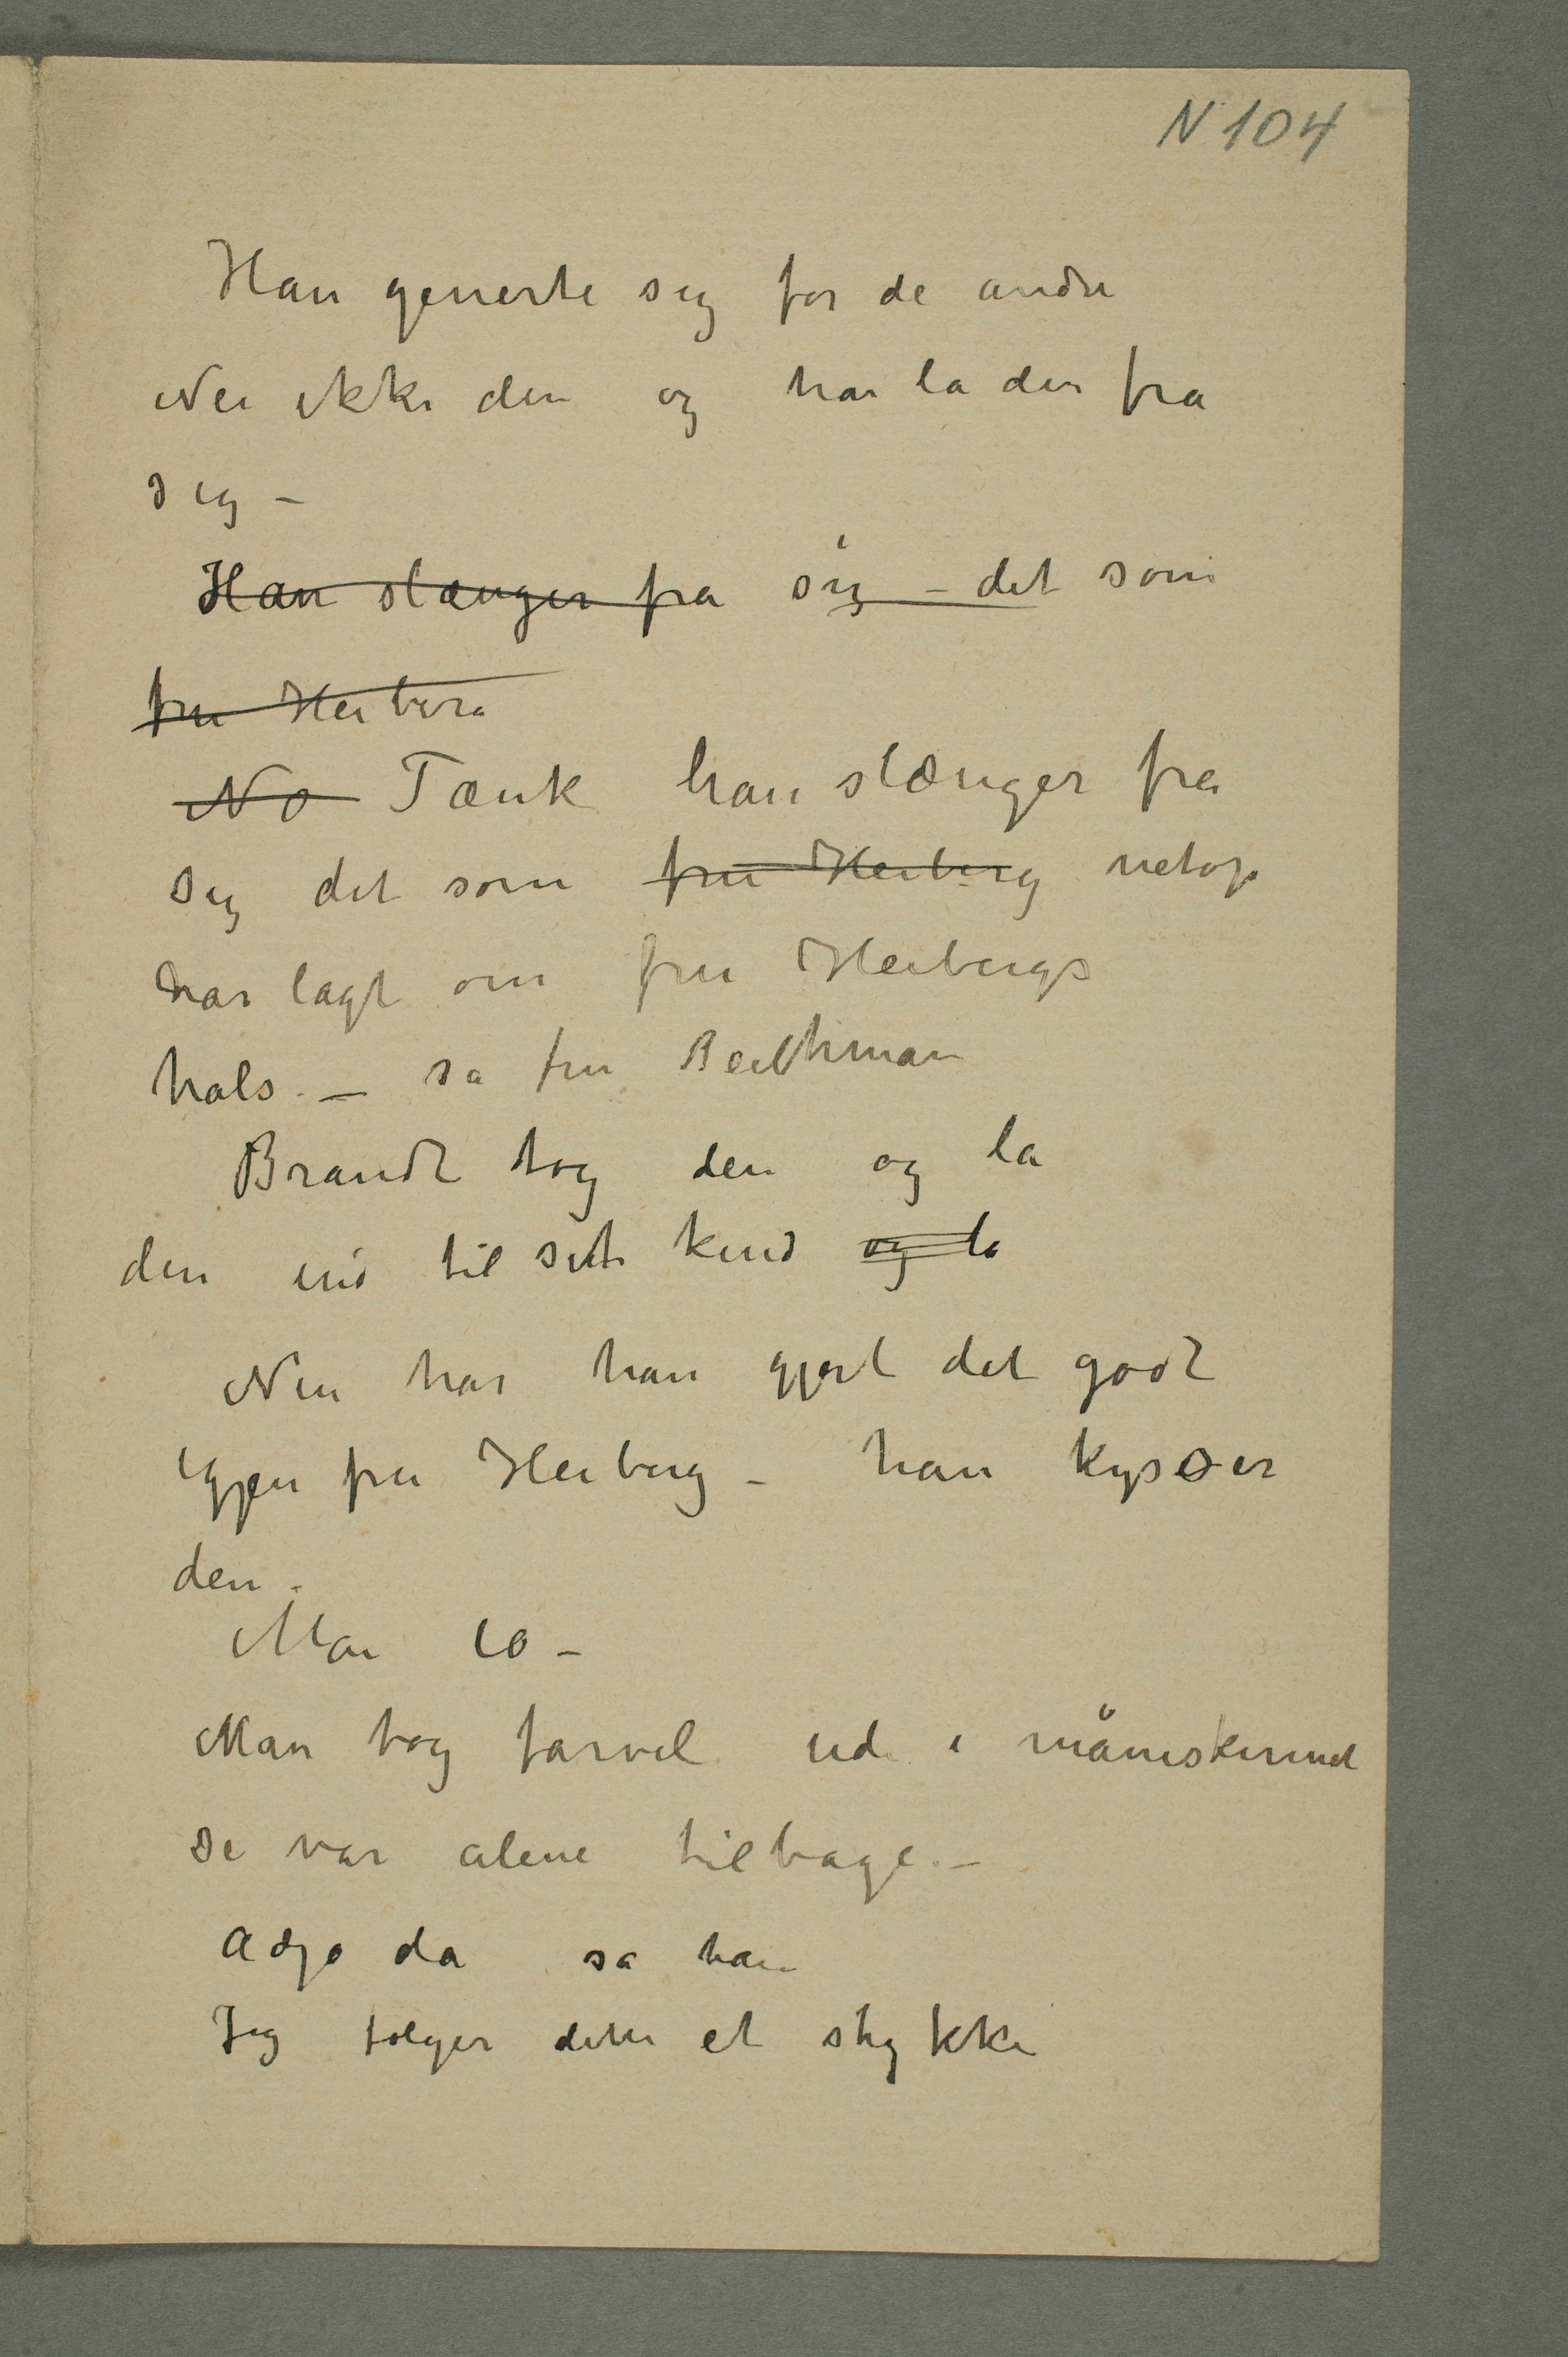 N 104
Han generte sig for de andre
Nei ikke den og han la den fra
sig –
Han slænger fra sig – det som
fru Heiberg
Nø Tænk han slænger fra
sig det som fru Heiberg netop
har lagt om fru Heibergs
hals – sa fru
Brandt tog den og la
den ind til sit kind og la
Nu har han gjort det godt
igjen fru Heiberg – han kysser
den.
Man lo –
Man tog farvel ude i måneskinnet
De var alene tilbage. –
Adjø da sa han
Jeg følger dem et stykke